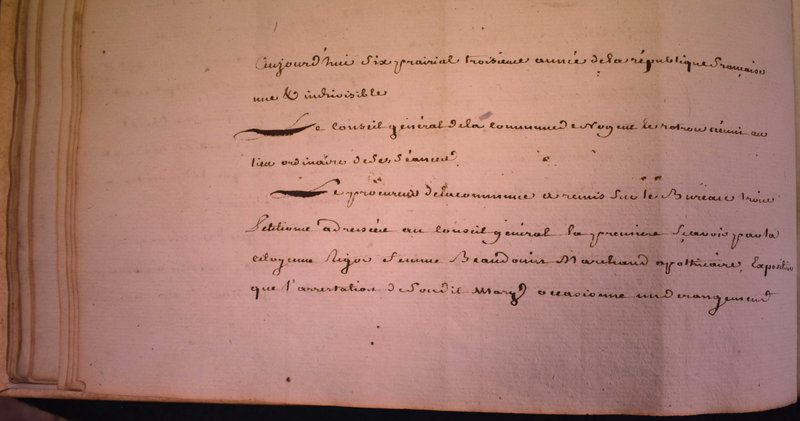 Aujourd'hui six prairial troisieme année de la république française
une & indivisible
Le Conseil général de la commune de Nogent le rotrou réuni au
lieu ordinaire de ses séances
Le procureur de la commune a remis sur le Bureau trois
Petitions adressées au Conseil général la premiere sçavoir par la
citoyenne Rigot femme Beaudouin Marchand apothicaire, Expositive
que l'arrestation de Son dit Mary occasionne un derangement